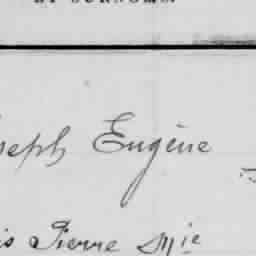 seph Eugène
is Pierre Mie